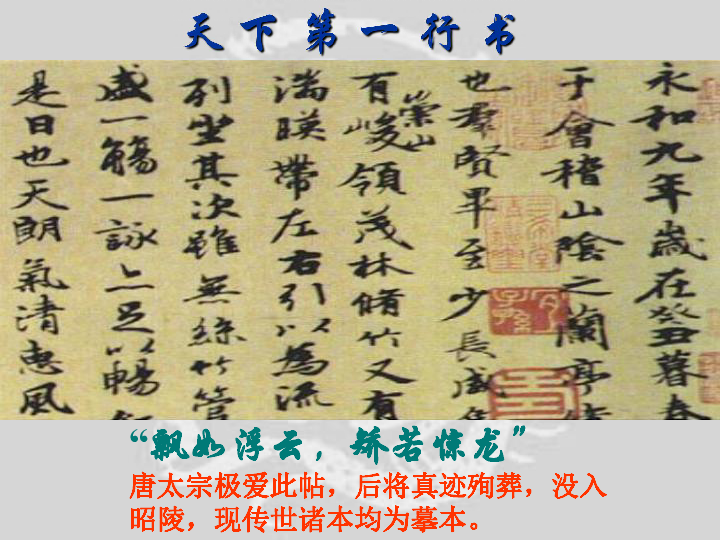 天下第一行书
永和九年歲在癸丑暮春
于會稽山陰之蘭亭脩
也羣賢畢至少長咸集
有崇山峻領茂林脩竹又有
湍暎帶左右引以為流
列坐其次雖無絲竹管
盛一觴一詠亦足以暢
是日也天朗氣清惠風
“飘如浮云，矫若惊龙”
唐太宗极爱此帖，后将真迹殉葬，没入
昭陵，现传世诸本均为摹本。